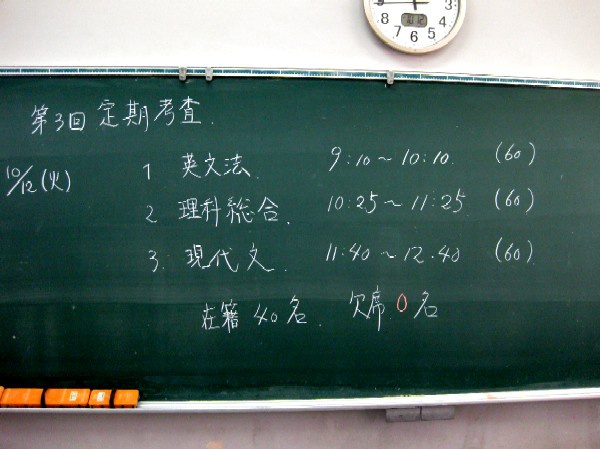 第3回 定期考査.
10/12(火)
1 英文法. 9:10~10:10. (60)
2 理科総合. 10:25~11:25 (60)
3. 現代文. 11:40~12.40 (60)
在籍 40名. 欠席 0名
9 8 7 6 5 4 3